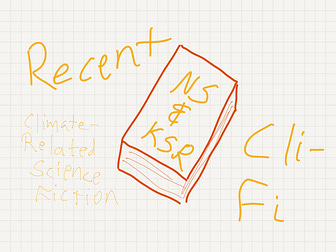 Recent
NS
&
KSR
Climate-
Related
Science
Fiction
Cli-
Fi